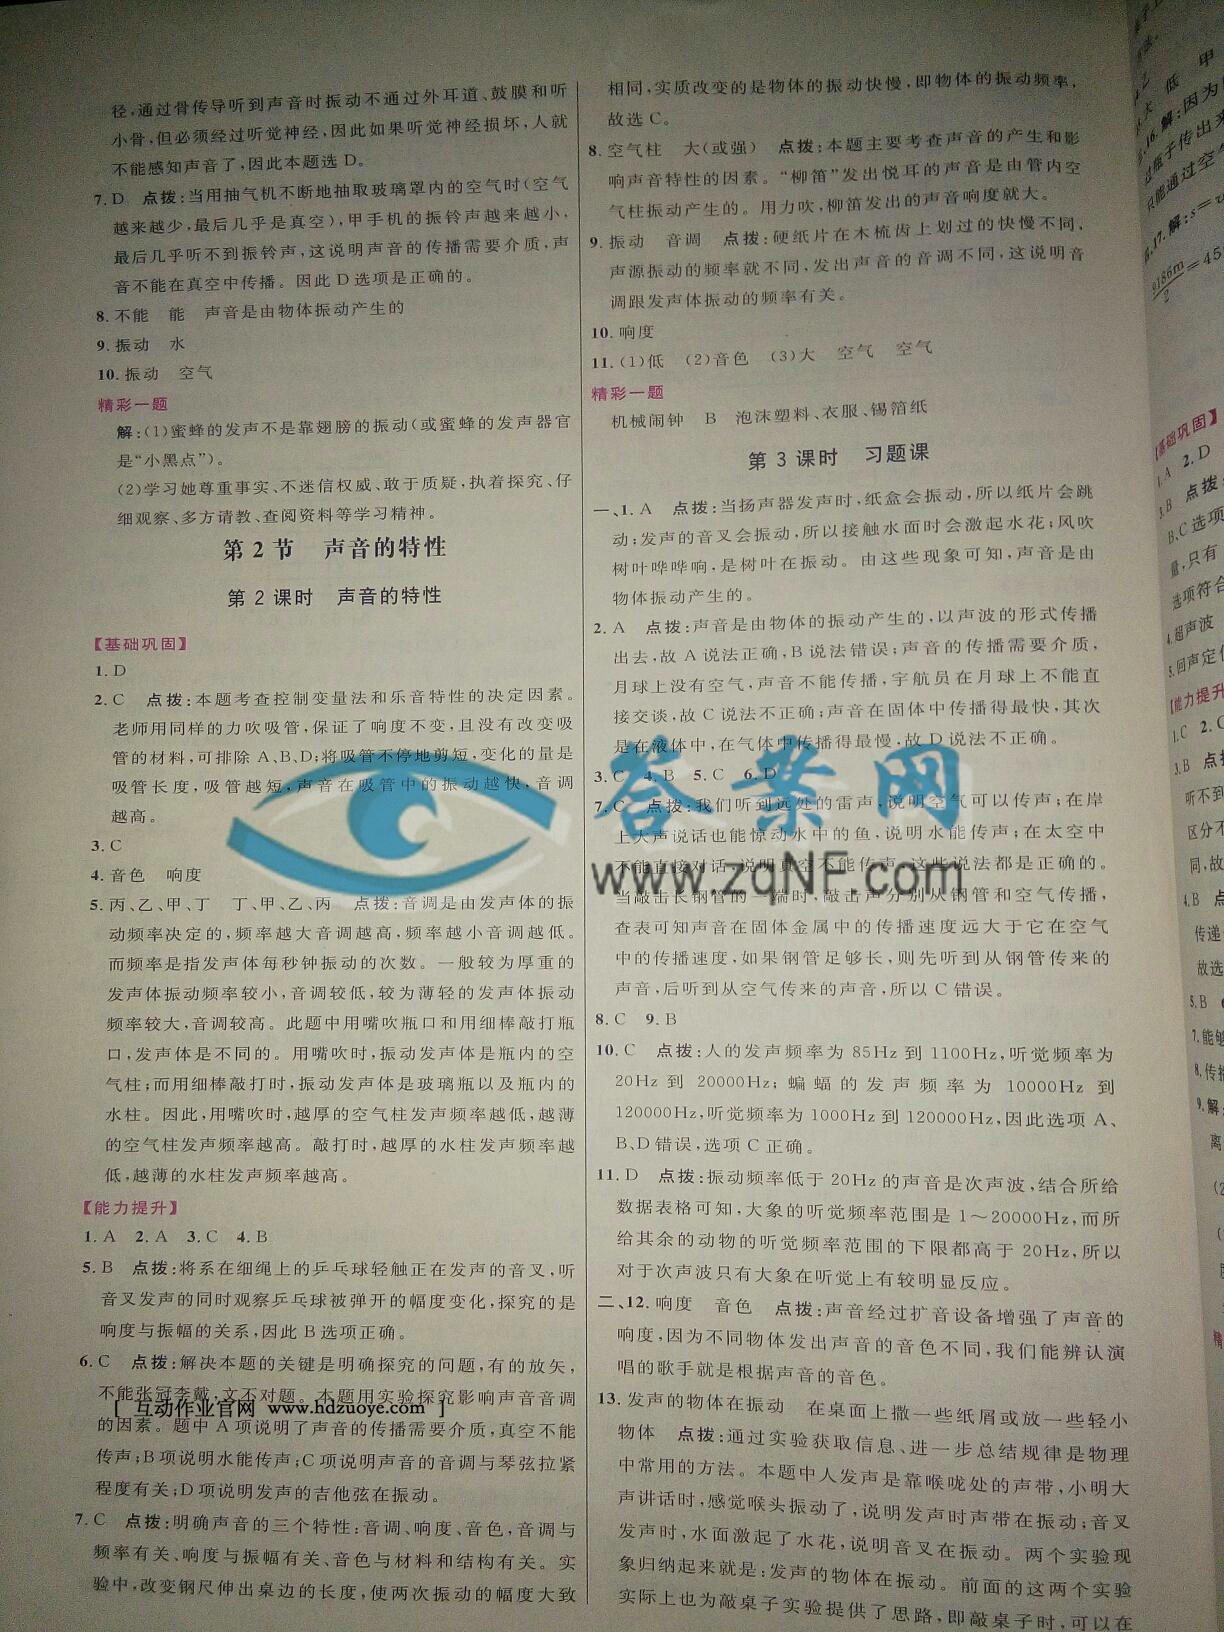 径,通过骨传导听到声音时振动不通过外耳道、鼓膜和听
小骨,但必须经过听觉神经,因此如果听觉神经损坏,人就
不能感知声音了,因此本题选 D。
7. D 点拨:当用抽气机不断地抽取玻璃罩内的空气时(空气
越来越少,最后几乎是真空),甲手机的振铃声越来越小,
最后几乎听不到振铃声,这说明声音的传播需要介质,声
音不能在真空中传播。因此 D 选项是正确的。
8. 不能 能 声音是由物体振动产生的
9. 振动 水
10. 振动 空气
精彩一题
解:(1)蜜蜂的发声不是靠翅膀的振动(或蜜蜂的发声器官
是“小黑点”)。
(2)学习她尊重事实、不迷信权威、敢于质疑,执着探究、仔
细观察、多方请教、查阅资料等学习精神。
第 2 节 声音的特性
第 2 课时 声音的特性
【基础巩固】
1. D
2. C 点拨:本题考查控制变量法和乐音特性的决定因素。
老师用同样的力吹吸管,保证了响度不变,且没有改变吸
管的材料,可排除 A、B、D;将吸管不停地剪短,变化的量是
吸管长度,吸管越短,声音在吸管中的振动越快,音调
越高。
3. C
4. 音色 响度
5. 丙、乙、甲、丁 丁、甲、乙、丙 点拨:音调是由发声体的振
动频率决定的,频率越大音调越高,频率越小音调越低。
而频率是指发声体每秒钟振动的次数。一般较为厚重的
发声体振动频率较小,音调较低,较为薄轻的发声体振动
频率较大,音调较高。此题中用嘴吹瓶口和用细棒敲打瓶
口,发声体是不同的。用嘴吹时,振动发声体是瓶内的空
气柱;而用细棒敲打时,振动发声体是玻璃瓶以及瓶内的
水柱。因此,用嘴吹时,越厚的空气柱发声频率越低,越薄
的空气柱发声频率越高。敲打时,越厚的水柱发声频率越
低,越薄的水柱发声频率越高。
【能力提升】
1. A 2. A 3. C 4. B
5. B 点拨:将系在细绳上的乒乓球轻触正在发声的音叉,听
音叉发声的同时观察乒乓球被弹开的幅度变化,探究的是
响度与振幅的关系,因此 B 选项正确。
6. C 点拨:解决本题的关键是明确探究的问题,有的放矢,
不能张冠李戴,文不对题。本题用实验探究影响声音音调
[ 互动作业官网 www.hdzuoye.com ]
的因素。题中 A 项说明了声音的传播需要介质,真空不能
传声;B 项说明水能传声;C 项说明声音的音调与琴弦拉紧
程度有关;D 项说明发声的吉他弦在振动。
7. C 点拨:明确声音的三个特性:音调、响度、音色,音调与
频率有关、响度与振幅有关、音色与材料和结构有关。实
验中,改变钢尺伸出桌边的长度,使两次振动的幅度大致
相同,实质改变的是物体的振动快慢,即物体的振动频率,
故选 C。
8. 空气柱 大(或强) 点拨:本题主要考查声音的产生和影
响声音特性的因素。“柳笛”发出悦耳的声音是由管内空
气柱振动产生的。用力吹,柳笛发出的声音响度就大。
9. 振动 音调 点拨:硬纸片在木梳齿上划过的快慢不同,
声源振动的频率就不同,发出声音的音调不同,这说明音
调跟发声体振动的频率有关。
10. 响度
11. (1)低 (2)音色 (3)大 空气 空气
精彩一题
机械闹钟 B 泡沫塑料、衣服、锡箔纸
第 3 课时 习题课
一、1. A 点拨:当扬声器发声时,纸盒会振动,所以纸片会跳
动;发声的音叉会振动,所以接触水面时会激起水花;风吹
树叶哗哗响,是树叶在振动。由这些现象可知,声音是由
物体振动产生的。
2. A 点拨:声音是由物体的振动产生的,以声波的形式传播
出去,故 A 说法正确,B 说法错误;声音的传播需要介质,
月球上没有空气,声音不能传播,宇航员在月球上不能直
接交谈,故 C 说法不正确;声音在固体中传播得最快,其次
是在液体中,在气体中传播得最慢,故 D 说法不正确。
3. C 4. B 5. C 6. D
答案网
7. C 点拨:我们听到远处的雷声,说明空气可以传声;在岸
上大声说话也能惊动水中的鱼,说明水能传声;在太空中
不能直接对话,说明真空不能传声,这些说法都是正确的。
www.zqNF.com
当敲击长钢管的一端时,敲击声分别从钢管和空气传播,
查表可知声音在固体金属中的传播速度远大于它在空气
中的传播速度,如果钢管足够长,则先听到从钢管传来的
声音,后听到从空气传来的声音,所以 C 错误。
8. C 9. B
10. C 点拨:人的发声频率为 85Hz 到 1100Hz,听觉频率为
20Hz 到 20000Hz;蝙蝠的发声频率为 10000Hz 到
120000Hz,听觉频率为 1000Hz 到 120000Hz,因此选项 A、
B、D 错误,选项 C 正确。
11. D 点拨:振动频率低于 20Hz 的声音是次声波,结合所给
数据表格可知,大象的听觉频率范围是 1～20000Hz,而所
给其余的动物的听觉频率范围的下限都高于 20Hz,所以
对于次声波只有大象在听觉上有较明显反应。
二、12. 响度 音色 点拨:声音经过扩音设备增强了声音的
响度,因为不同物体发出声音的音色不同,我们能辨认演
唱的歌手就是根据声音的音色。
13. 发声的物体在振动 在桌面上撒一些纸屑或放一些轻小
物体 点拨:通过实验获取信息、进一步总结规律是物理
中常用的方法。本题中人发声是靠喉咙处的声带,小明大
声讲话时,感觉喉头振动了,说明发声时声带在振动;音叉
发声时,水面激起了水花,说明音叉在振动。两个实验现
象归纳起来就是:发声的物体在振动。前面的这两个实验
实际上也为敲桌子实验提供了思路,即敲桌子时,可以在
大 低 甲
16. 解:因为
过瓶子传出来
只能通过空气
17. 解:s=v
9186m
2
=45
【基础巩固】
1. A 2. D
3. B 点拨
B、C 选项
量,只有
选项符合
4. 超声波
5. 回声定位
【能力提升
1. C 2. C
3. B 点拨
听不到
区分不
同,故
4. B 点
传递
故选
5. B
7. 能够
8. 传播
9. 解:
离
(2
精